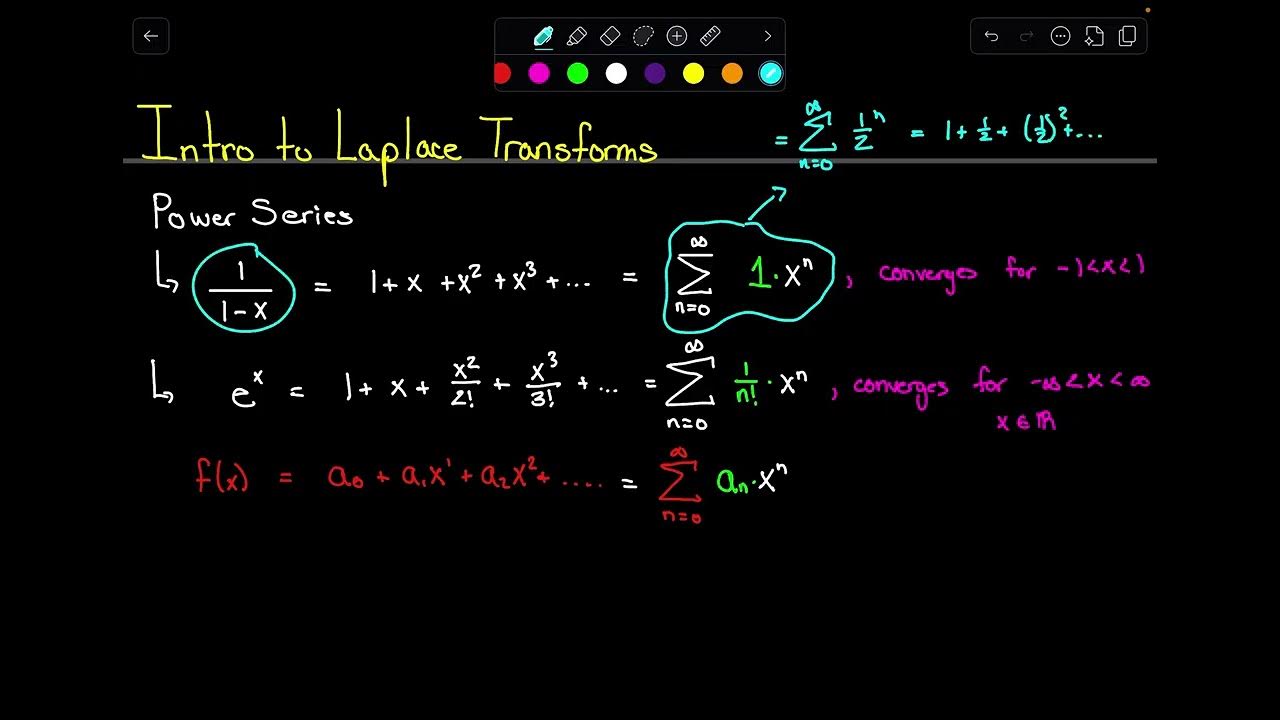 Intro to Laplace Transforms
= ∞ Σ n=0 1/2^n = 1 + 1/2 + (1/2)^2 + ...
Power Series
↳ 1/(1-x) = 1 + x + x^2 + x^3 + ... = ∞ Σ n=0 1·x^n , converges for -1<x<1
↳ e^x = 1 + x + x^2/2! + x^3/3! + ... = ∞ Σ n=0 1/n! · x^n , converges for -∞<x<∞
x∈ℝ
f(x) = a₀ + a₁x^1 + a₂x^2 + .... = ∞ Σ n=0 aₙ·x^n